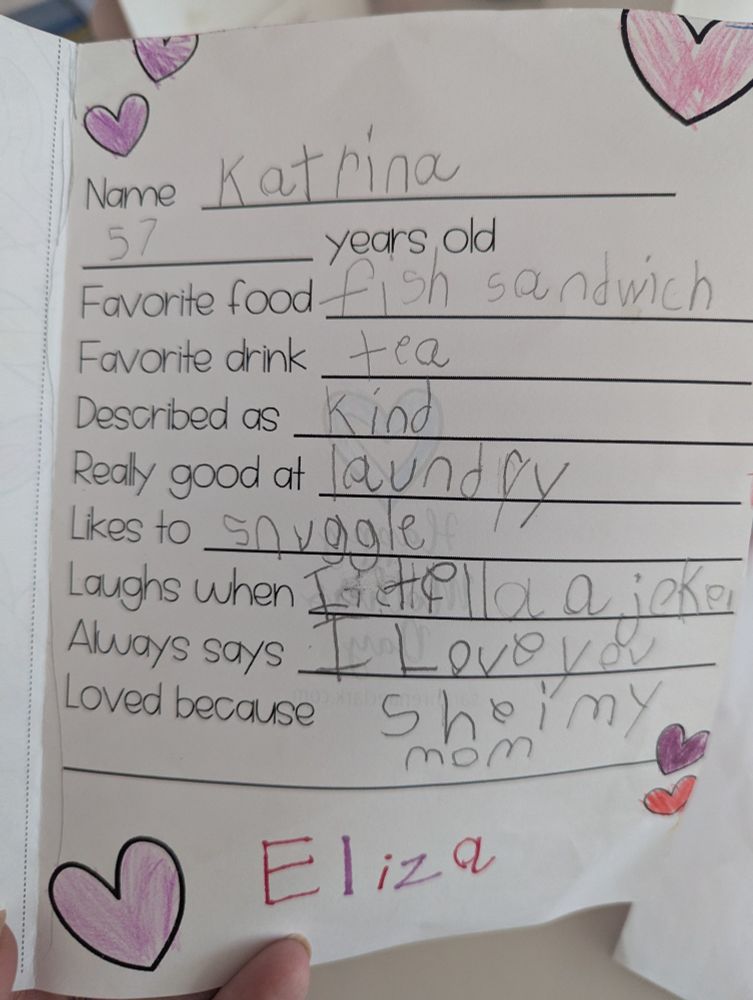 Name Katrina
57 years old
Favorite food fish sandwich
Favorite drink tea
Described as kind
Really good at laundry
Likes to snuggle
Laughs when I tell a joke
Always says I Love you
Loved because she i my
mom
Eliza